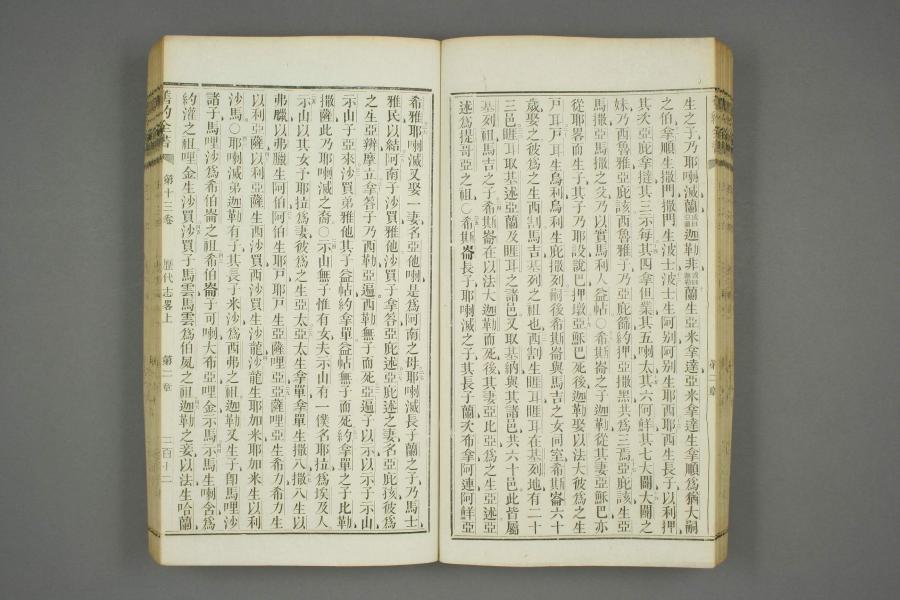 生之子乃耶喇滅蘭迦勒非蘭生亞米拿達亞米拿達生拿順爲猶大嗣
之伯拿順生撒門撒門生波士波士生阿別阿別生耶西耶西生長子以利押
其次亞庇拿撻其三示每其四拿但業其五喇太其六阿鮮其七大闢大闢之
妹乃西魯雅亞庇該西魯雅子乃亞庇篩約押亞撒黑共爲三焉亞庇該生亞
馬撒亞馬撒之父乃以實馬利人益帖〇希斯崙之子迦勒從其妻亞穌巴亦
從耶畧而生子其子乃耶設說巴押墩亞穌巴死後迦勒娶以法大彼爲之生
戶耳戶耳生烏利烏利生庇撒列嗣後希斯崙與馬吉之女同室希斯崙六十
歲娶之彼爲之生西割馬吉基列之祖也西割生睚耳睚耳在基列地有二十
三邑睚耳取基述亞蘭及睚耳之諸邑又取基納與其諸邑共六十邑此皆屬
基列祖馬吉之子希斯崙在以法大迦勒而死後其妻亞比亞爲之生亞述亞
述爲提哥亞之祖〇希斯崙長子耶喇滅之子其長子蘭次布拿阿連阿鮮亞
希雅耶喇滅又娶一妻名亞他喇是爲阿南之母耶喇滅長子蘭之子乃馬士
雅民以結阿南子沙買雅他沙買子拿答亞庇述亞庇述之妻名亞庇孩彼爲
之生亞辦摩立拿答子乃西勒亞遍西勒無子而死亞遍子以示以示子示山
示山子亞來沙買弟雅他其子益帖約拿單益帖無子而死約拿單之子比勒
撒薩此乃耶喇滅之裔〇示山無子惟有女夫示山有一僕名耶拉爲埃及人
示山以其女子耶拉爲妻彼爲之生亞太亞太生拿單拿單生撒八撒八生以
弗臘以弗臘生阿伯阿伯生耶戶耶戶生亞薩哩亞亞薩哩亞生希力希力生
以利亞薩以利亞薩生西沙買西沙買生沙龍沙龍生耶加米耶加米生以利
沙馬〇耶喇滅弟迦勒有子其長子米沙爲西弗之祖迦勒又生子卽馬哩沙
諸子馬哩沙爲希伯崙之祖希伯崙子可喇大布亞哩金示馬示馬生喇含爲
約灌之祖哩金生沙買沙買子馬雲馬雲爲伯夙之祖迦勒之妾以法生哈蘭
舊約全書 第十三卷 歷代志畧上 第二章 二百十二